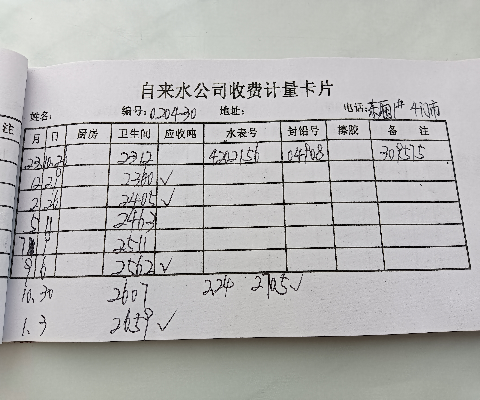 自来水公司收费计量卡片
姓名: 编号: 0.204-30 地址: 电话:
注 月 日 厨房 卫生间 应收吨 水表号 封铅号 橡胶 备 注
23.10.26 2312 4202156 04908 308575
12 29 2380 ✓
2 26 2405 ✓
5 11 2463
7 9 2511
9 6 2562 ✓
10.30 2607 2.24 2705 ✓
1.3 2659 ✓